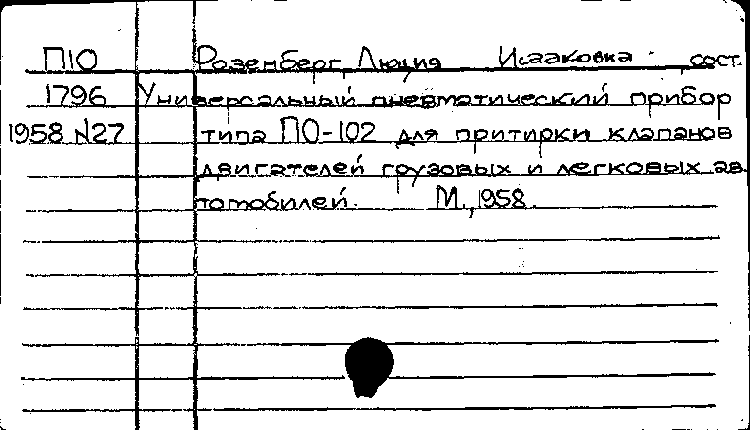 П10 Розенберг, Люция Исааковна сост.
1796 Универсальный пневматический прибор
1958 №27 типа ПО-102 для притирки клапанов
двигателей грузовых и легковых ав
томобилей. М., 1958.